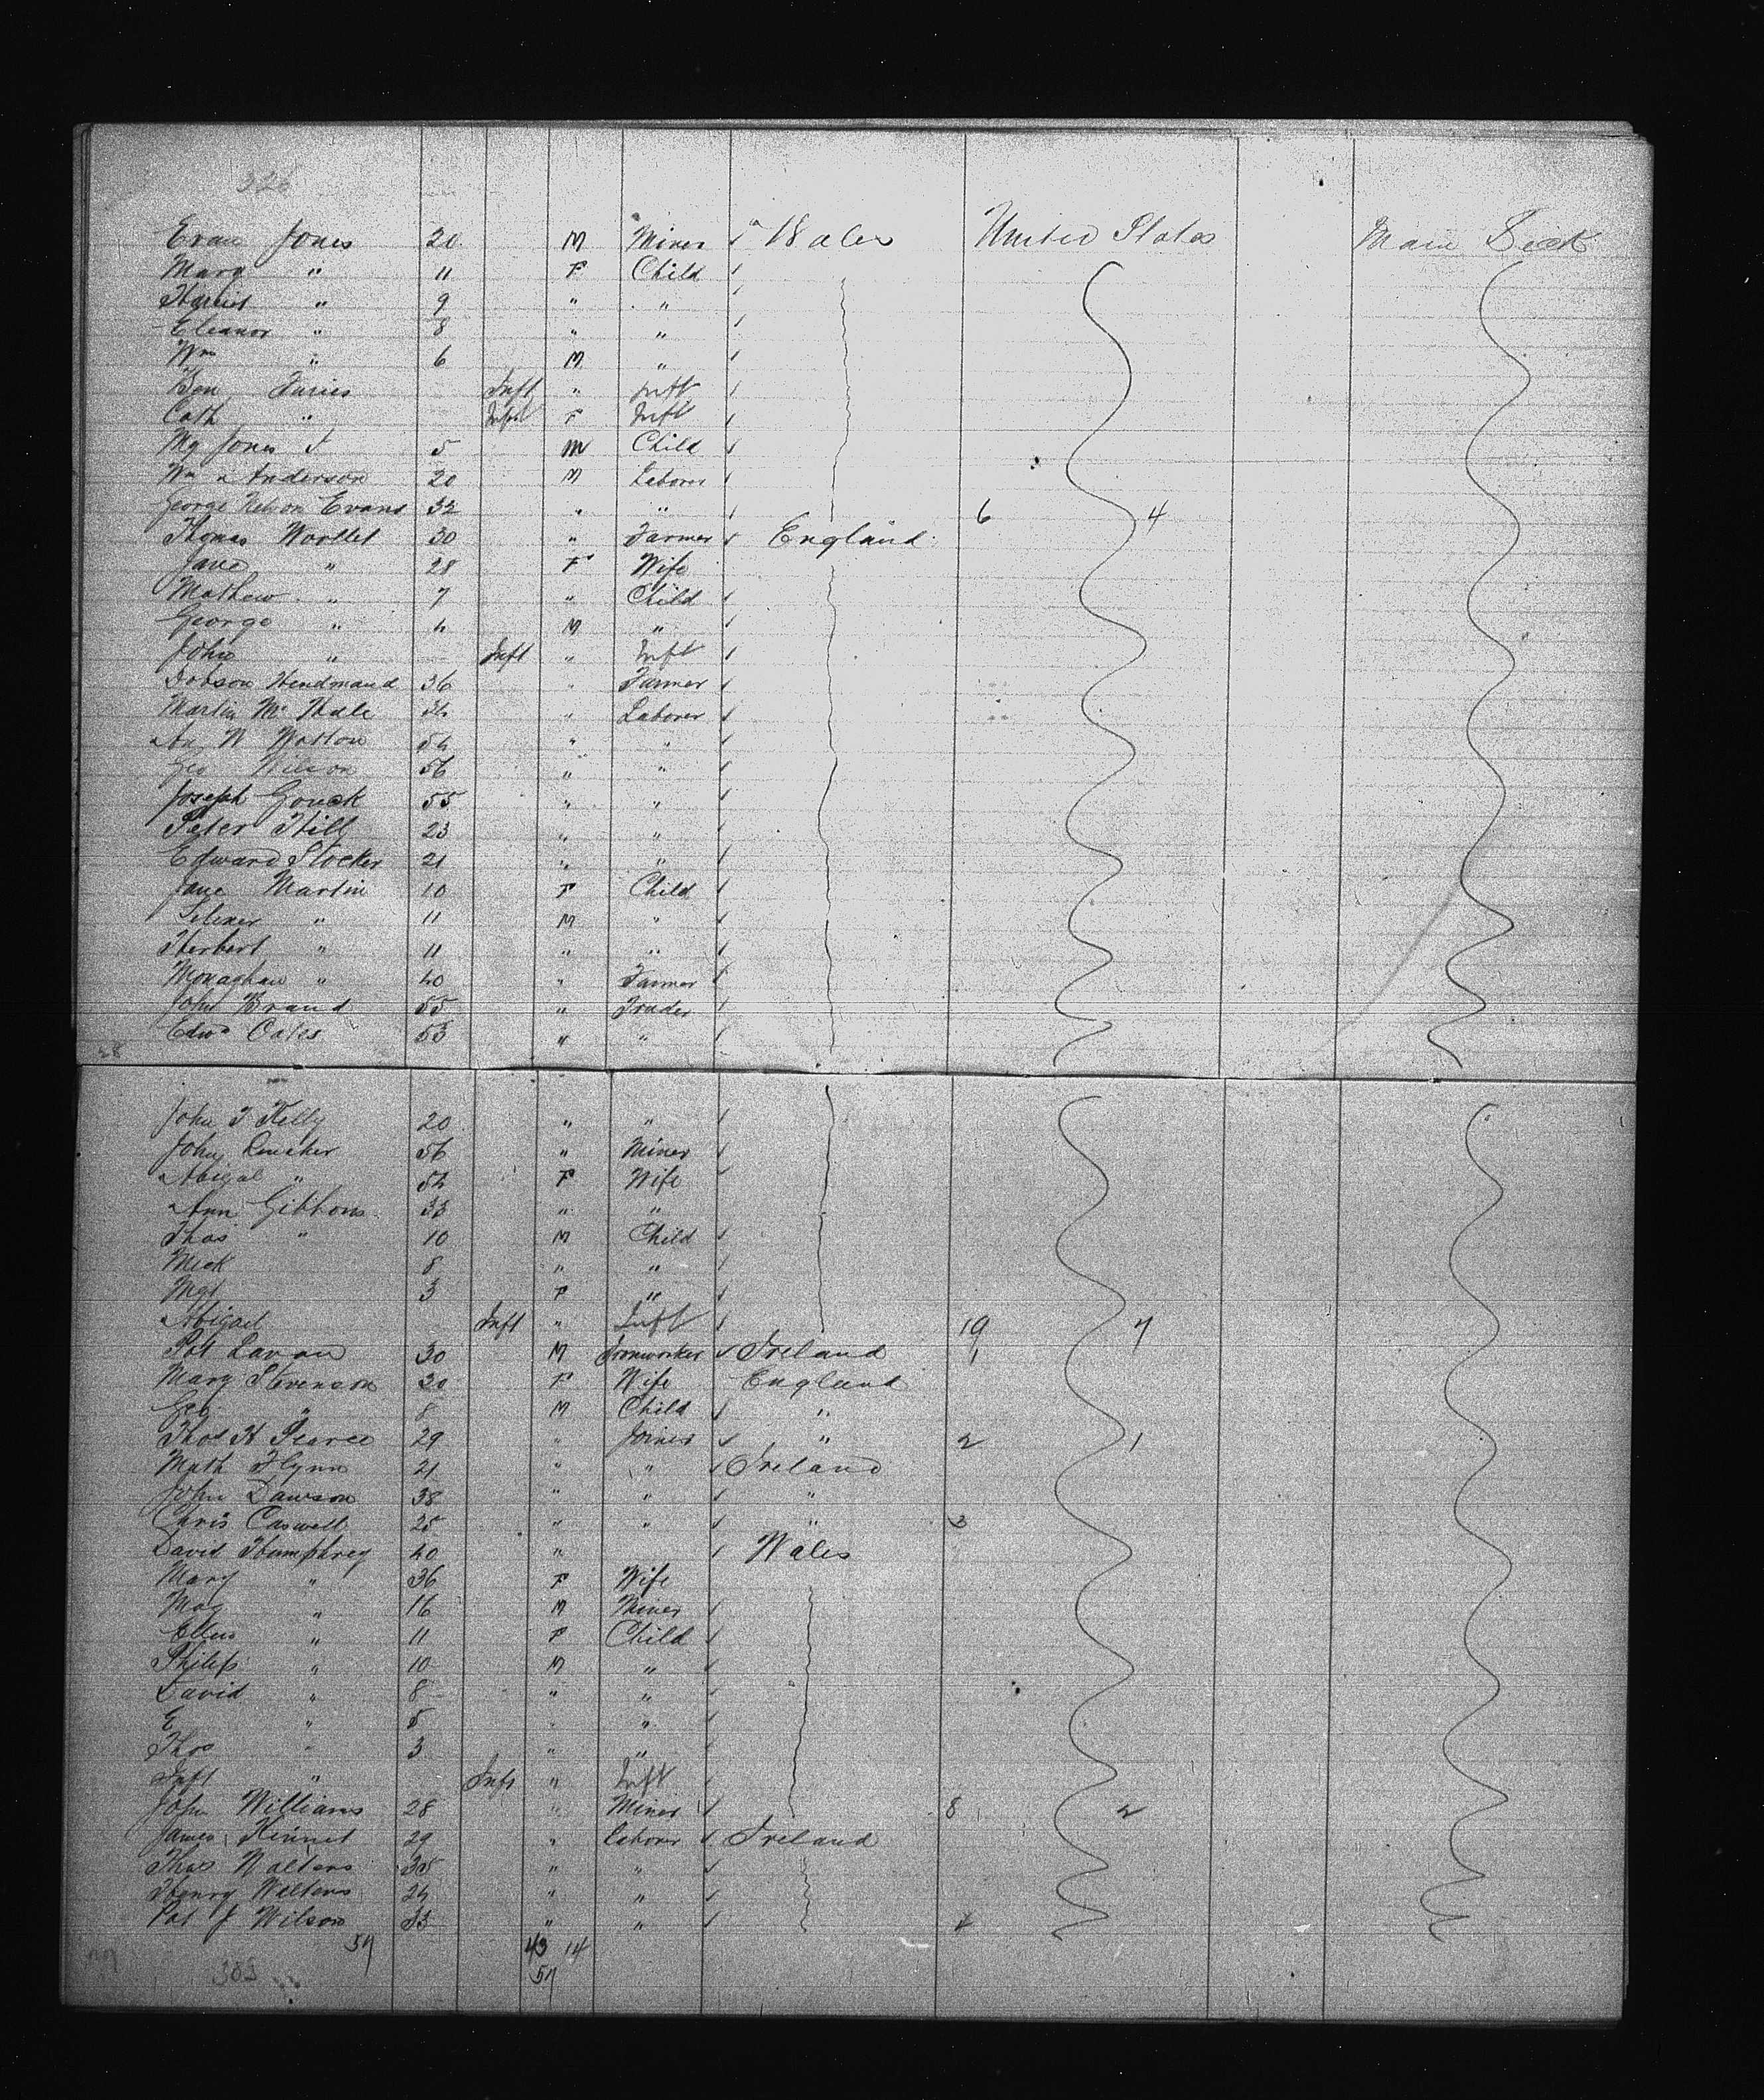 326
Evan Jones 20 M Miner Wales United States Main Deck
Mary " 11 F Child
Harriet " 9 " "
Eleanor " 8 " "
Wm " 6 M "
Ben Inft " Inft
Cath " Infnt F Inft
Mg Jones 5 M Child
Wm Anderson 20 M Laborer
George Nelson Evans 32 " " 6 4
Thomas Worllet 30 " Farmer England
Jane " 28 F Wife
Mathew " 7 " Child
George " 4 M "
John " Inft " Inft
Dobson Hindmand 36 " Farmer
Martin Mc Hale 34 " Laborer
W Watton 54 " "
Geo Wilson 56 " "
Joseph Gouck 55 " "
Peter Hill 23 " "
Edward Stocker 21 " "
Jane Martin 10 F Child
" 11 M "
Herbert " 11 " "
Monaghan " 40 " Farmer
John Brand 55 " Trader
Edwd Oates 53 " "
28
John T Kelly 20 " "
John 56 " Miner
Abigal " 54 F Wife
Ann Gibbons 33 " "
Thos " 10 M Child
Mick 8 " "
Mgt 3 F "
Abigail Inft " Inft 19 7
Pat Lavan 30 M Ironworker Ireland 1
Mary Stevenson 30 F Wife England
Geo " 8 M Child "
Thos H Pearce 29 " Joiner " 2 1
Math Flynn 21 " " Ireland
John Dawson 38 " " "
Chris Caswell 25 " " " 3
David Humphrey 40 " Wales
Mary " 36 F Wife
" 16 M Miner
Ellen " 11 F Child
Philip " 10 M "
David " 8 " "
E " 5 " "
Thos " 3 " "
Inft " Inft " Inft
John Williams 28 " Miner 8 2
James Kinnet 29 " Laborer Ireland
Thos Walters 35 " "
Henry Walters 24 " "
Pat J Wilson 33 " " 4
57 43 14
303 57